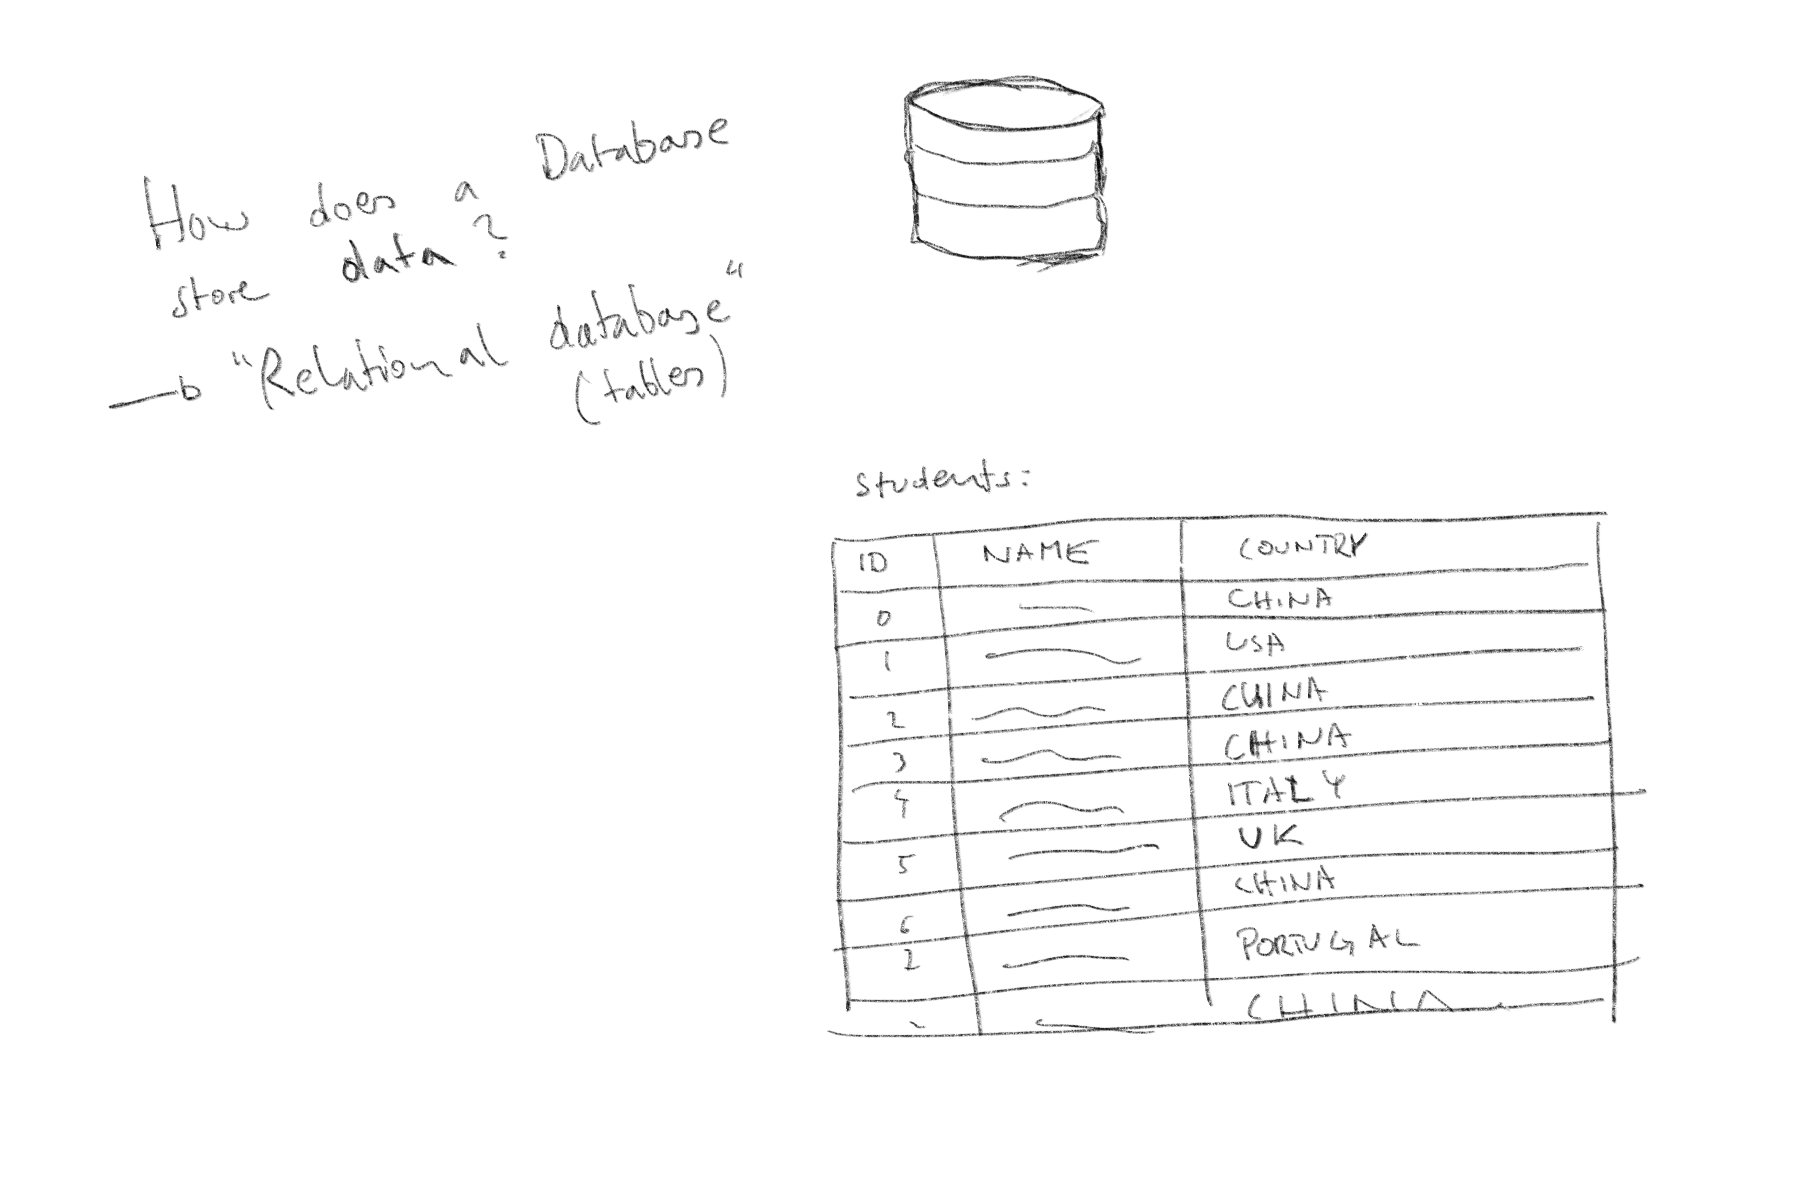 How does a Database
store data?
"Relational database"
(tables)
students:
ID NAME COUNTRY
0 CHINA
1 USA
2 CHINA
3 CHINA
4 ITALY
5 UK
6 CHINA
PORTUGAL
CHINA